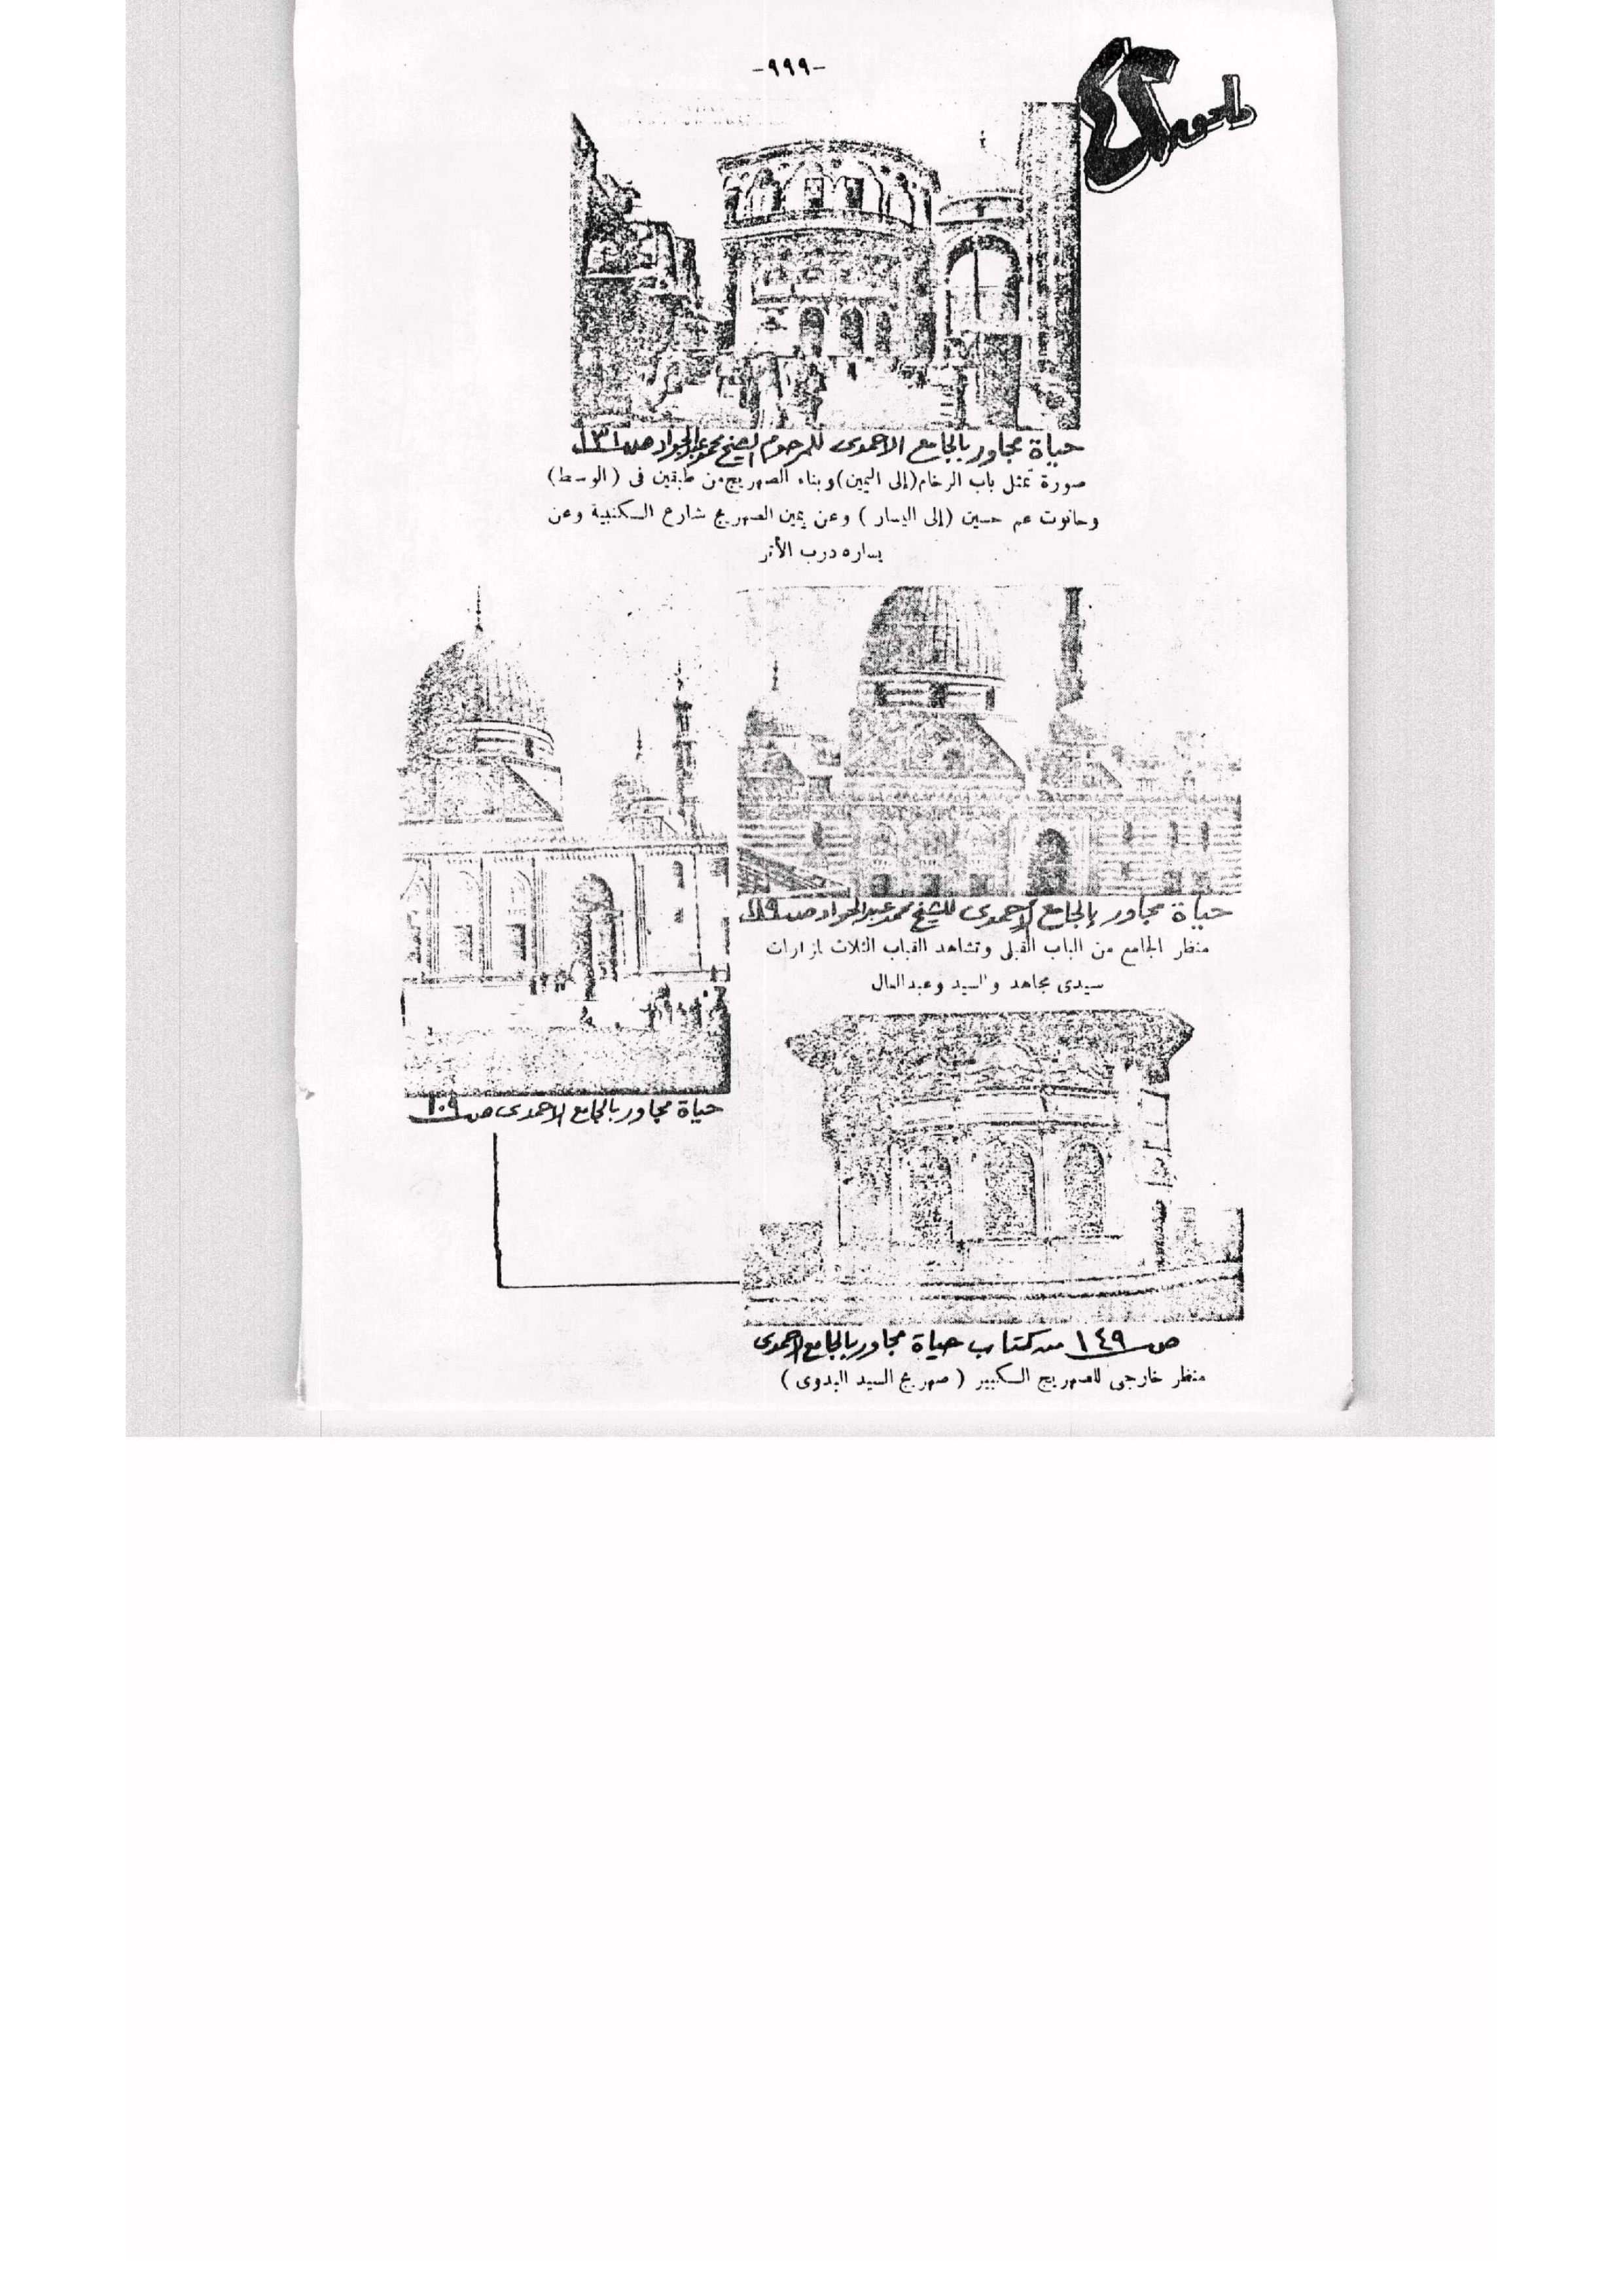 -٩٩٩-
ملحق ٤٢
حياة مجاور بالجامع الاحمدى للمرحوم الشيخ محمد عبد الجواد ص ١٣١
صورة تمثل باب الرخام (إلى اليمين) وبناء الصهريج من طبقتين فى (الوسط)
وحانوت عم حسين (إلى اليسار) وعن يمين الصهريج شارع السكنبية وعن
يساره درب الأثر
حياة مجاور بالجامع الأحمدى للشيخ محمد عبد الجواد ص
منظر الجامع من الباب القبلى وتشاهد القباب الثلاث لمزارات
سيدى مجاهد والسيد وعبد العال
حياة مجاور بالجامع الاحمدى ص ١٠٩
ص ١٤٩ من كتاب حياة مجاور بالجامع الاحمدى
منظر خارجى للصهريج الكبير (صهريج السيد البدوى)